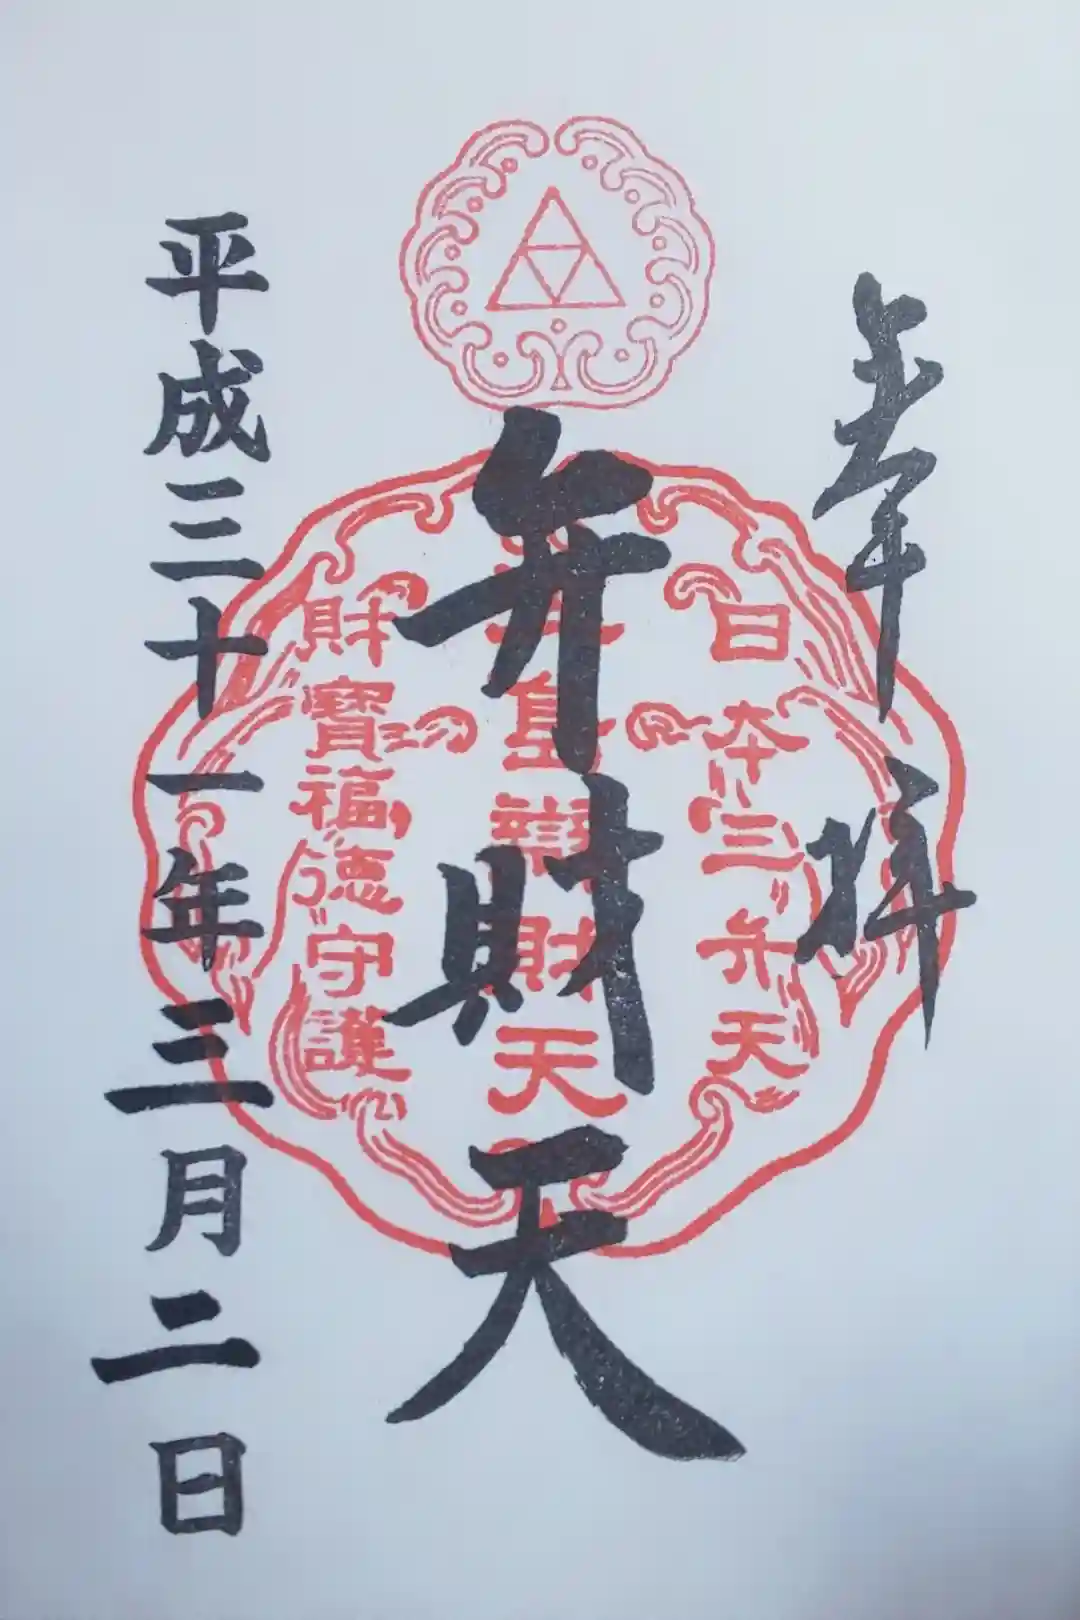 奉拝
日本三弁天
江島辯財天
財寶福徳守護
弁財天
平成三十一年三月二日